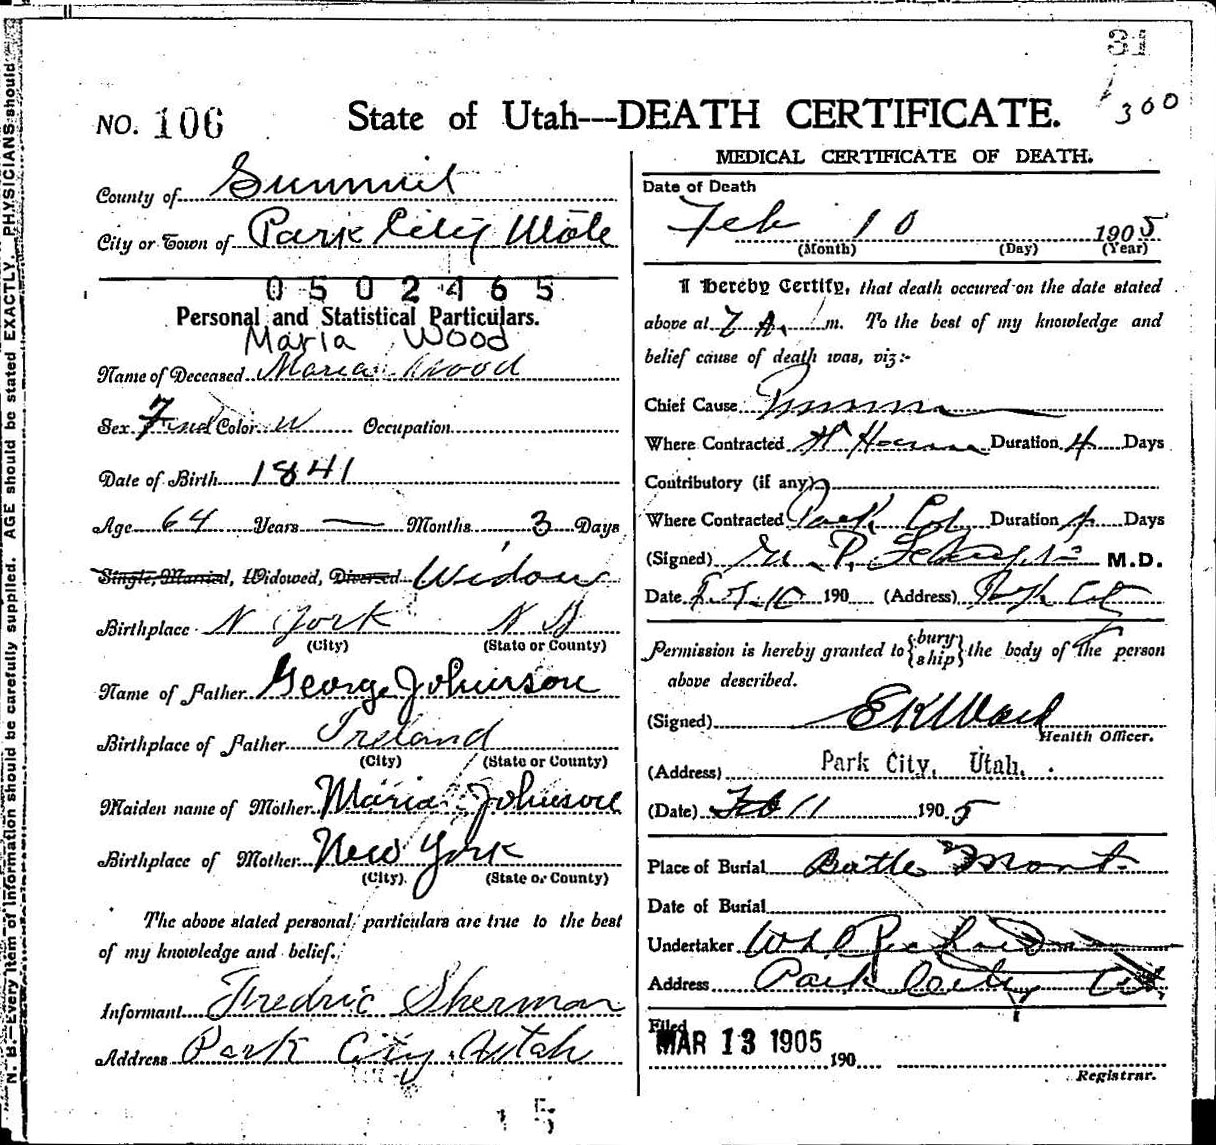 31
300
NO. 106 State of Utah---DEATH CERTIFICATE.
County of Summit
City or Town of Park City Utah
0502465
Personal and Statistical Particulars.
Maria Wood
Name of Deceased Maria Wood
Sex Fem Color W Occupation
Date of Birth 1841
Age 64 Years — Months 3 Days
Single, Married, Widowed, Divorced Widow
Birthplace N York
(City) (State or County)
Name of Father George Johnson
Birthplace of Father Ireland
(City) (State or County)
Maiden name of Mother Maria Johnson
Birthplace of Mother New York
(City) (State or County)
The above stated personal particulars are true to the best
of my knowledge and belief.
Informant Fredric Sherman
Address Park City Utah
MEDICAL CERTIFICATE OF DEATH.
Date of Death
Feb 10 1905
(Month) (Day) (Year)
I Hereby Certify, that death occured on the date stated
above at 7 A. m. To the best of my knowledge and
belief cause of death was, viz:-
Chief Cause
Where Contracted At Home Duration 4 Days
Contributory (if any)
Where Contracted Park City Duration 4 Days
(Signed) M.D.
Date 10 190 (Address) Park City
Permission is hereby granted to {bury ship} the body of the person
above described.
(Signed) E K Ward
Health Officer.
(Address) Park City, Utah.
(Date) Feb 11 1905
Place of Burial Battle Mont.
Date of Burial
Undertaker
Address Park City Ut
Filed
MAR 13 1905 190
Registrar.
N. B.—Every item of information should be carefully supplied. AGE should be stated EXACTLY. PHYSICIANS should